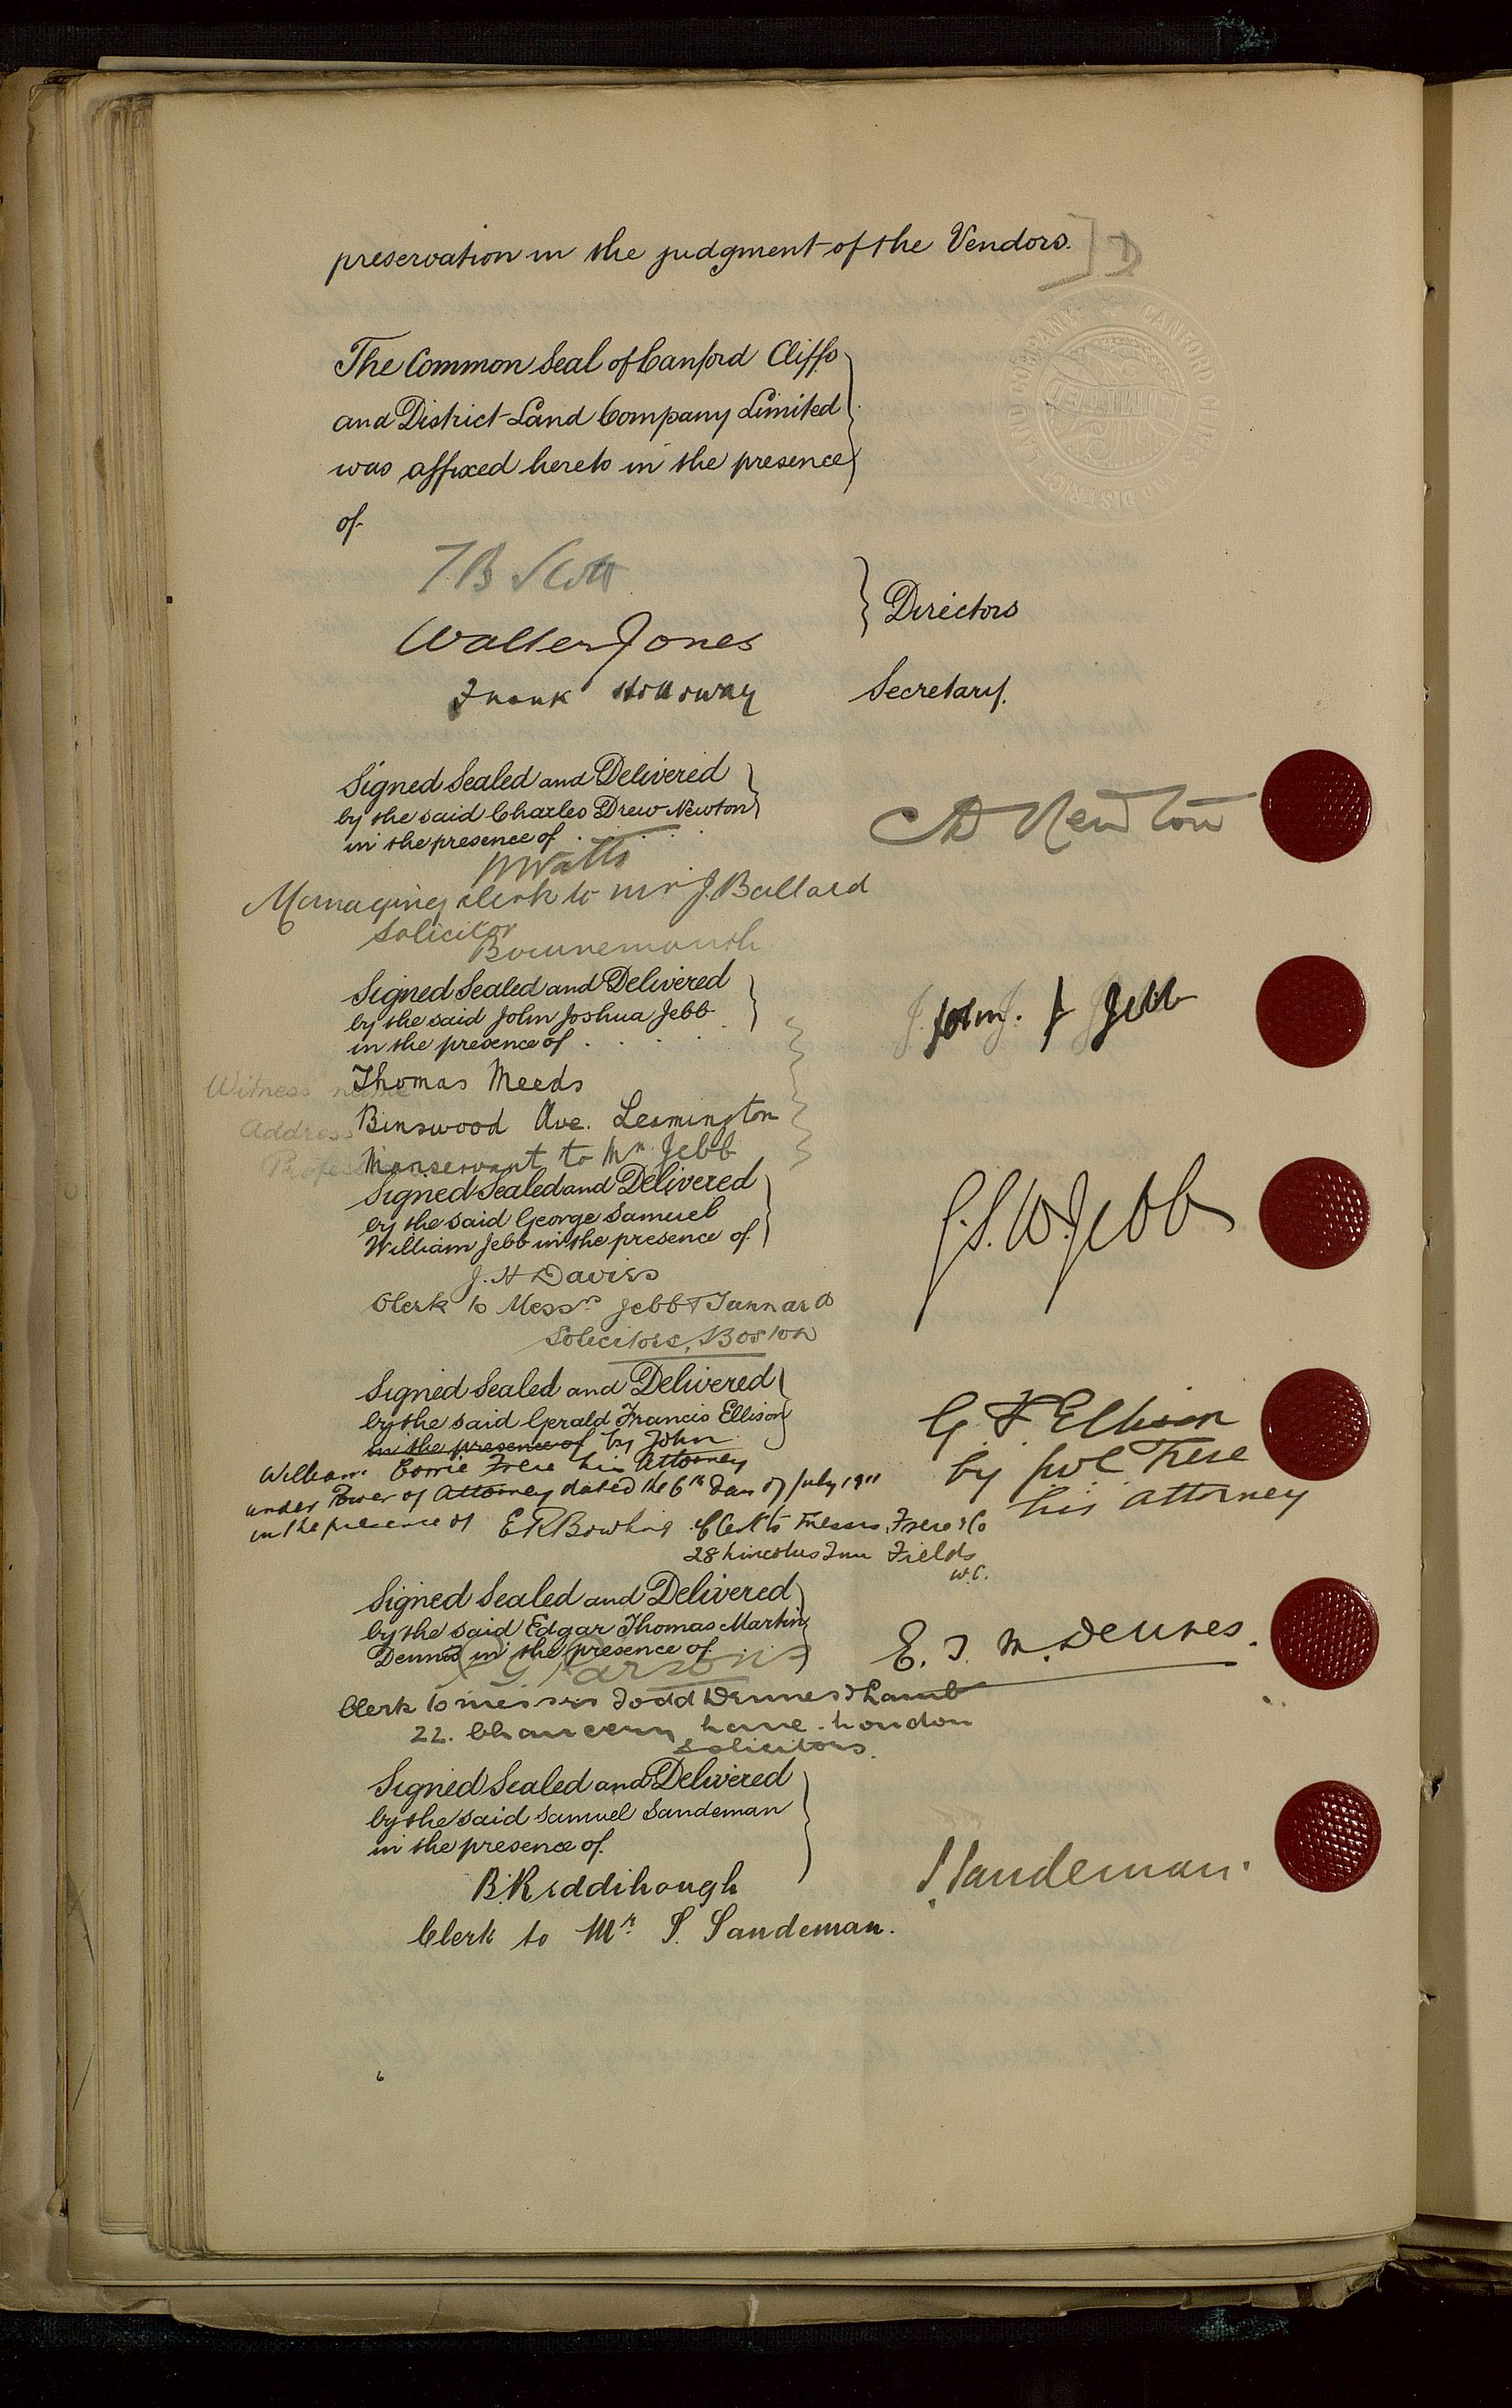 preservation in the judgment of the Vendors. ]
The Common Seal of Canford Cliffs
and District Land Company Limited
was affixed hereto in the presence
of
CANFORD CLIFFS AND DISTRICT LAND COMPANY
LIMITED
T B Scott
Walter Jones
Directors
Frank Holloway
Secretary.
Signed Sealed and Delivered
by the said Charles Drew Newton
in the presence of
C D Newton
W Watts
Managing clerk to Mr J. Ballard
Solicitor
Bournemouth
Signed Sealed and Delivered
by the said John Joshua Jebb
in the presence of
John J Jebb
Witness name Thomas Meeds
Address Binswood Ave. Leamington
Manservant to Mr. Jebb
Signed Sealed and Delivered
by the said George Samuel
William Jebb in the presence of
G. S. W. Jebb
J. H Davies
Clerk to Messrs Jebb & Tunnard
Solicitors, Boston
Signed Sealed and Delivered
by the said Gerald Francis Ellison
in the presence of by John
William Corrie Frere his Attorney
under Power of Attorney dated the 6th day of July 1911
in the presence of E R Bowling Clerk to Messrs. Frere & Co
28 Lincolns Inn Fields
W.C.
G F Ellison
by Frere
his attorney
Signed Sealed and Delivered
by the said Edgar Thomas Martin
Dennes in the presence of
E. T. M. Dennes.
Parsons
Clerk to messrs Dodd Dennes & Lamb
22. Chancery Lane. London
Solicitors.
Signed Sealed and Delivered
by the said Samuel Sandeman
in the presence of
S. Sandeman.
B. Riddihough
Clerk to Mr. S. Sandeman.